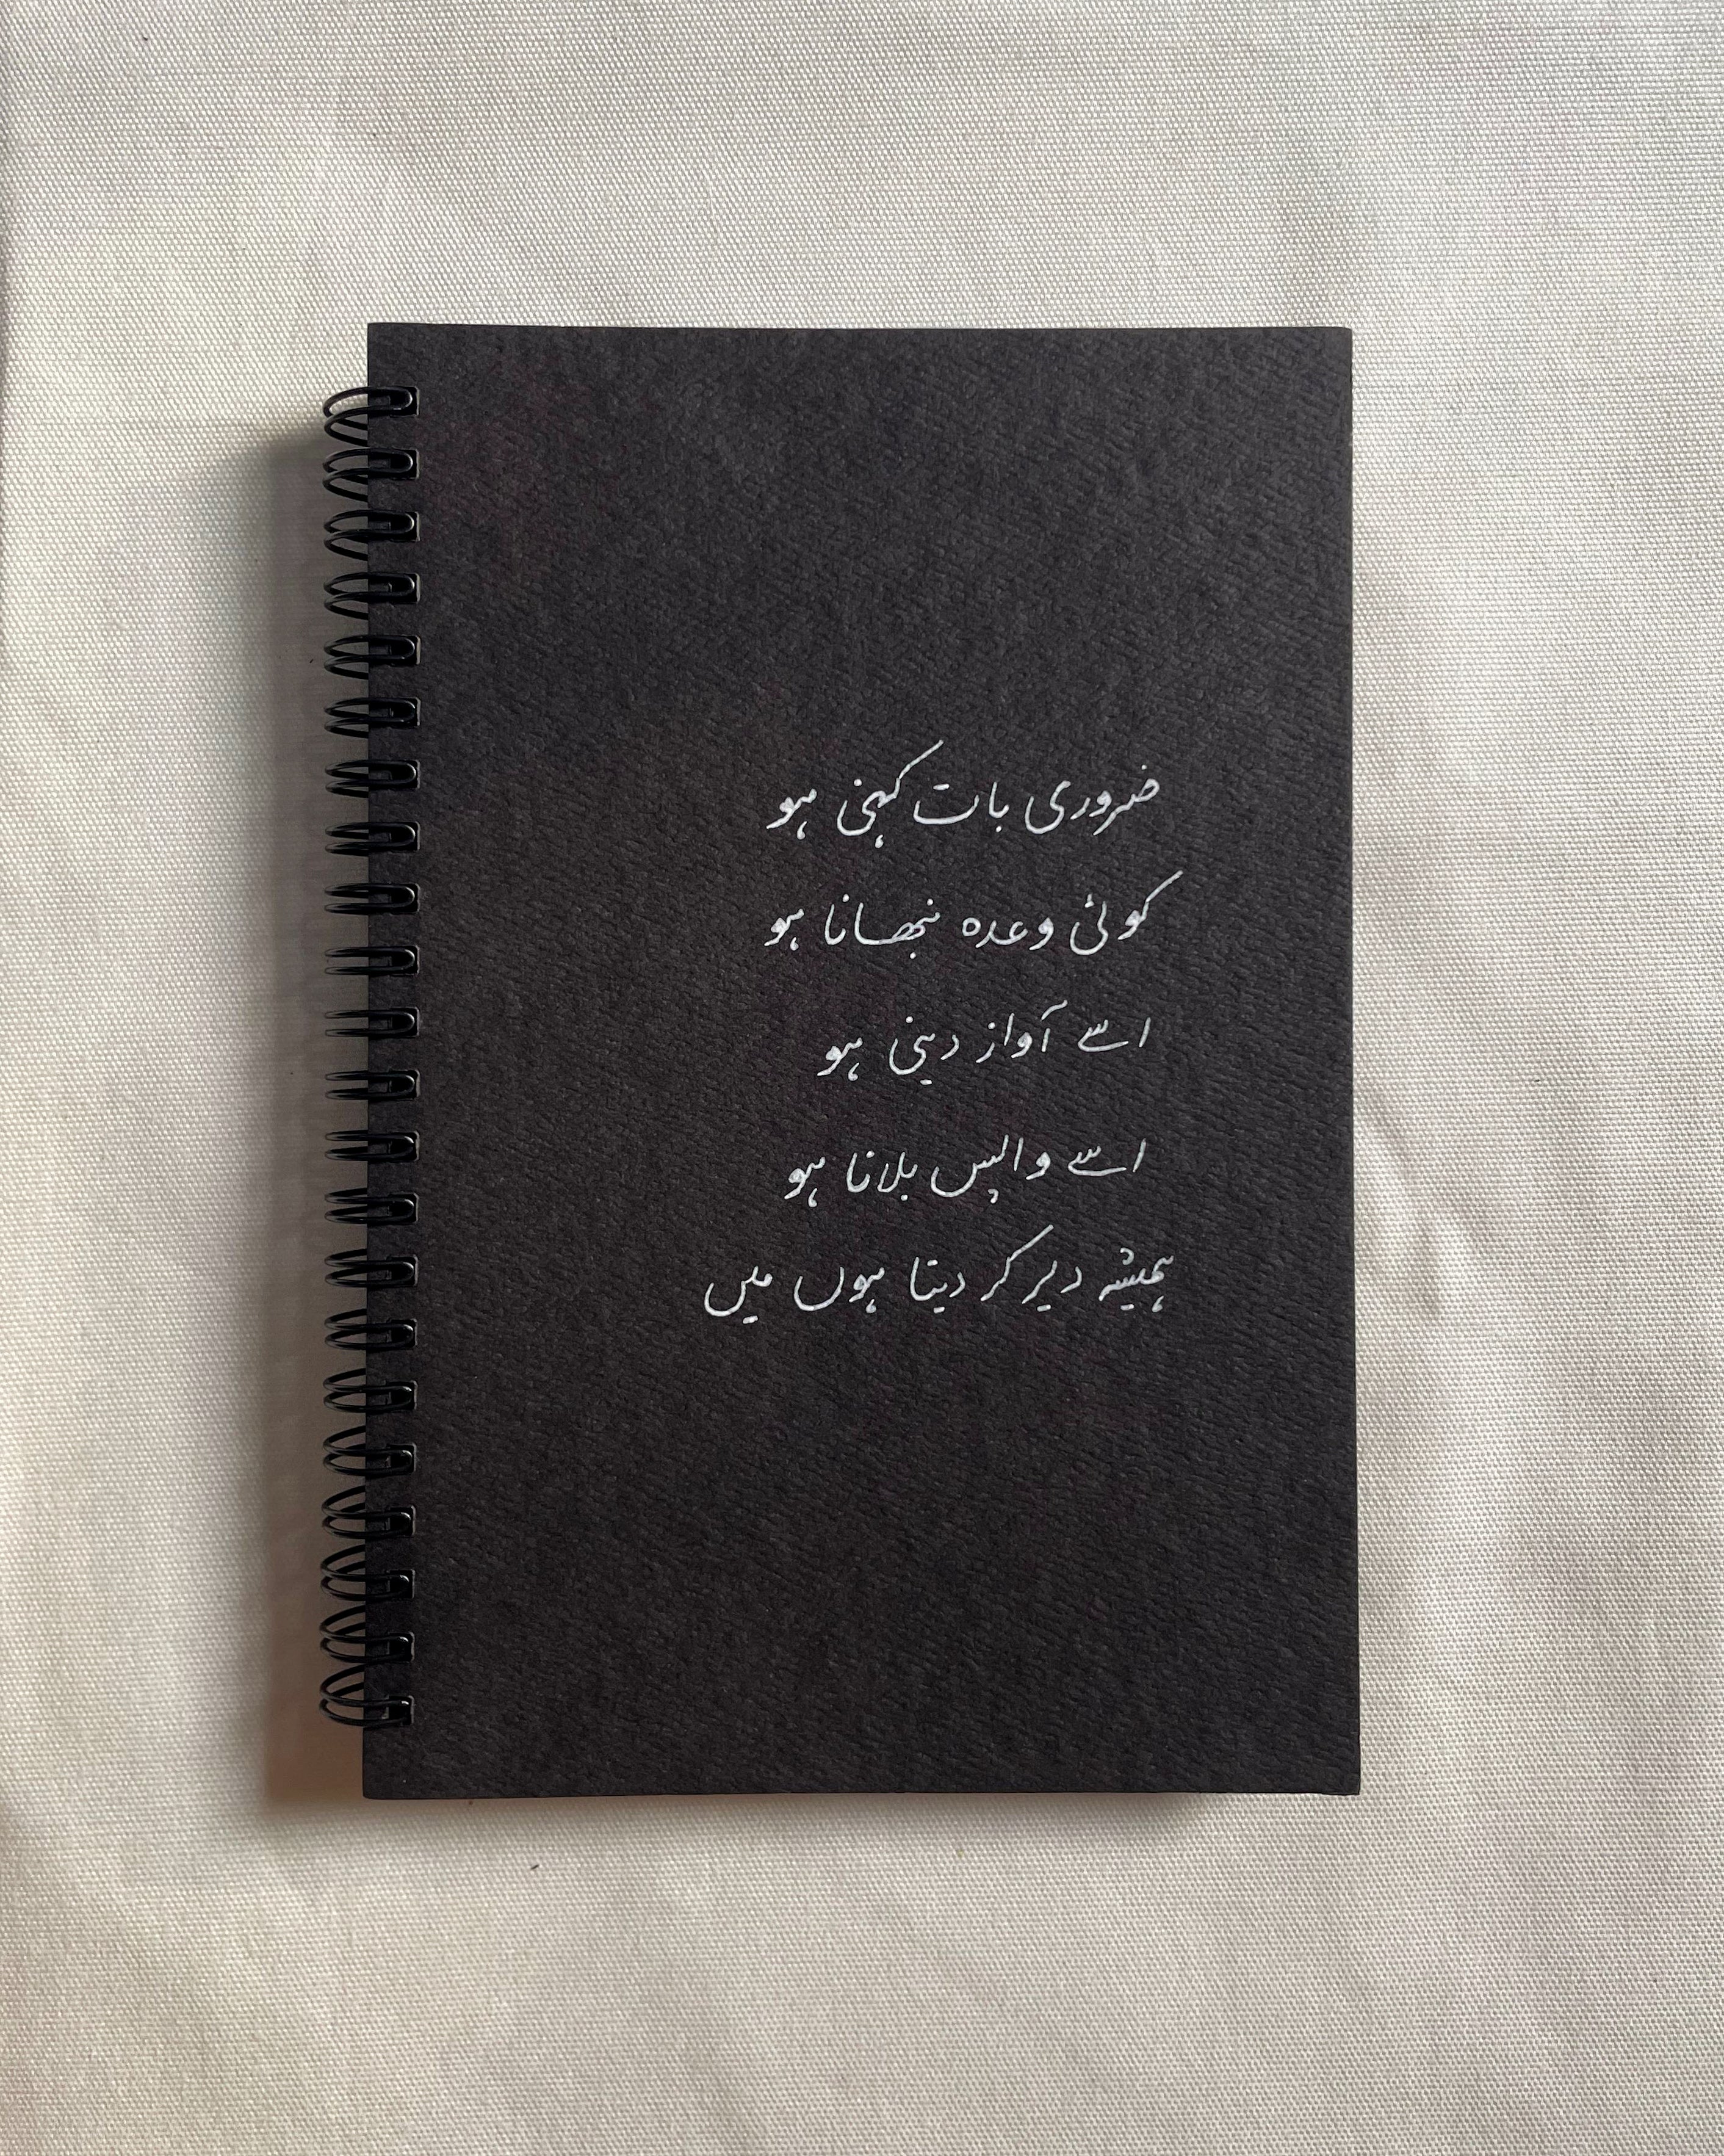 ضروری بات کہنی ہو
کوئی وعدہ نبھانا ہو
اسے آواز دینی ہو
اسے واپس بلانا ہو
ہمیشہ دیر کر دیتا ہوں میں